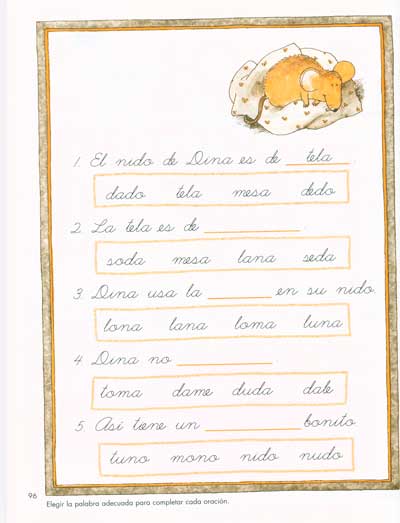 1. El nido de Dina es de tela.
dado tela mesa dedo
2. La tela es de ____________.
soda mesa lana seda
3. Dina usa la ________ en su nido.
lona lana loma luna
4. Dina no ____________
toma dame duda dale
5. Así tiene un ____________ bonito
tuno mono nido nudo
96
Elegir la palabra adecuada para completar cada oración.